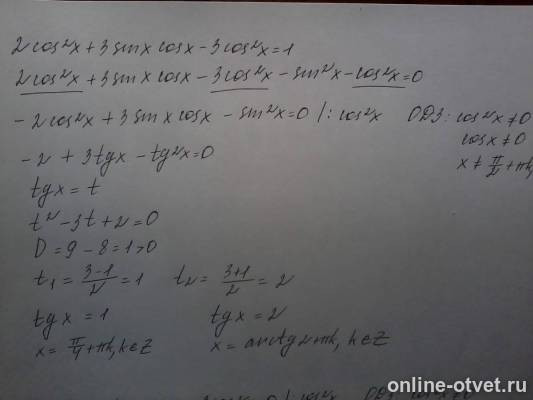 2cos²x+3sinx cosx-3cos²x=1
2cos²x+3sinx cosx-3cos²x-sin²x-cos²x=0
-2cos²x+3sinx cosx-sin²x=0 /:cos²x ОДЗ: cos²x≠0
cosx≠0
-2+3tgx-tg²x=0 x≠π/2+πk,
tgx=t
t²-3t+2=0
D=9-8=1>0
t₁=(3-1)/2=1 t₂=(3+1)/2=2
tgx=1 tgx=2
x=π/4+πk, k∈Z x=arctg2+πk, k∈Z
online-otvet.ru